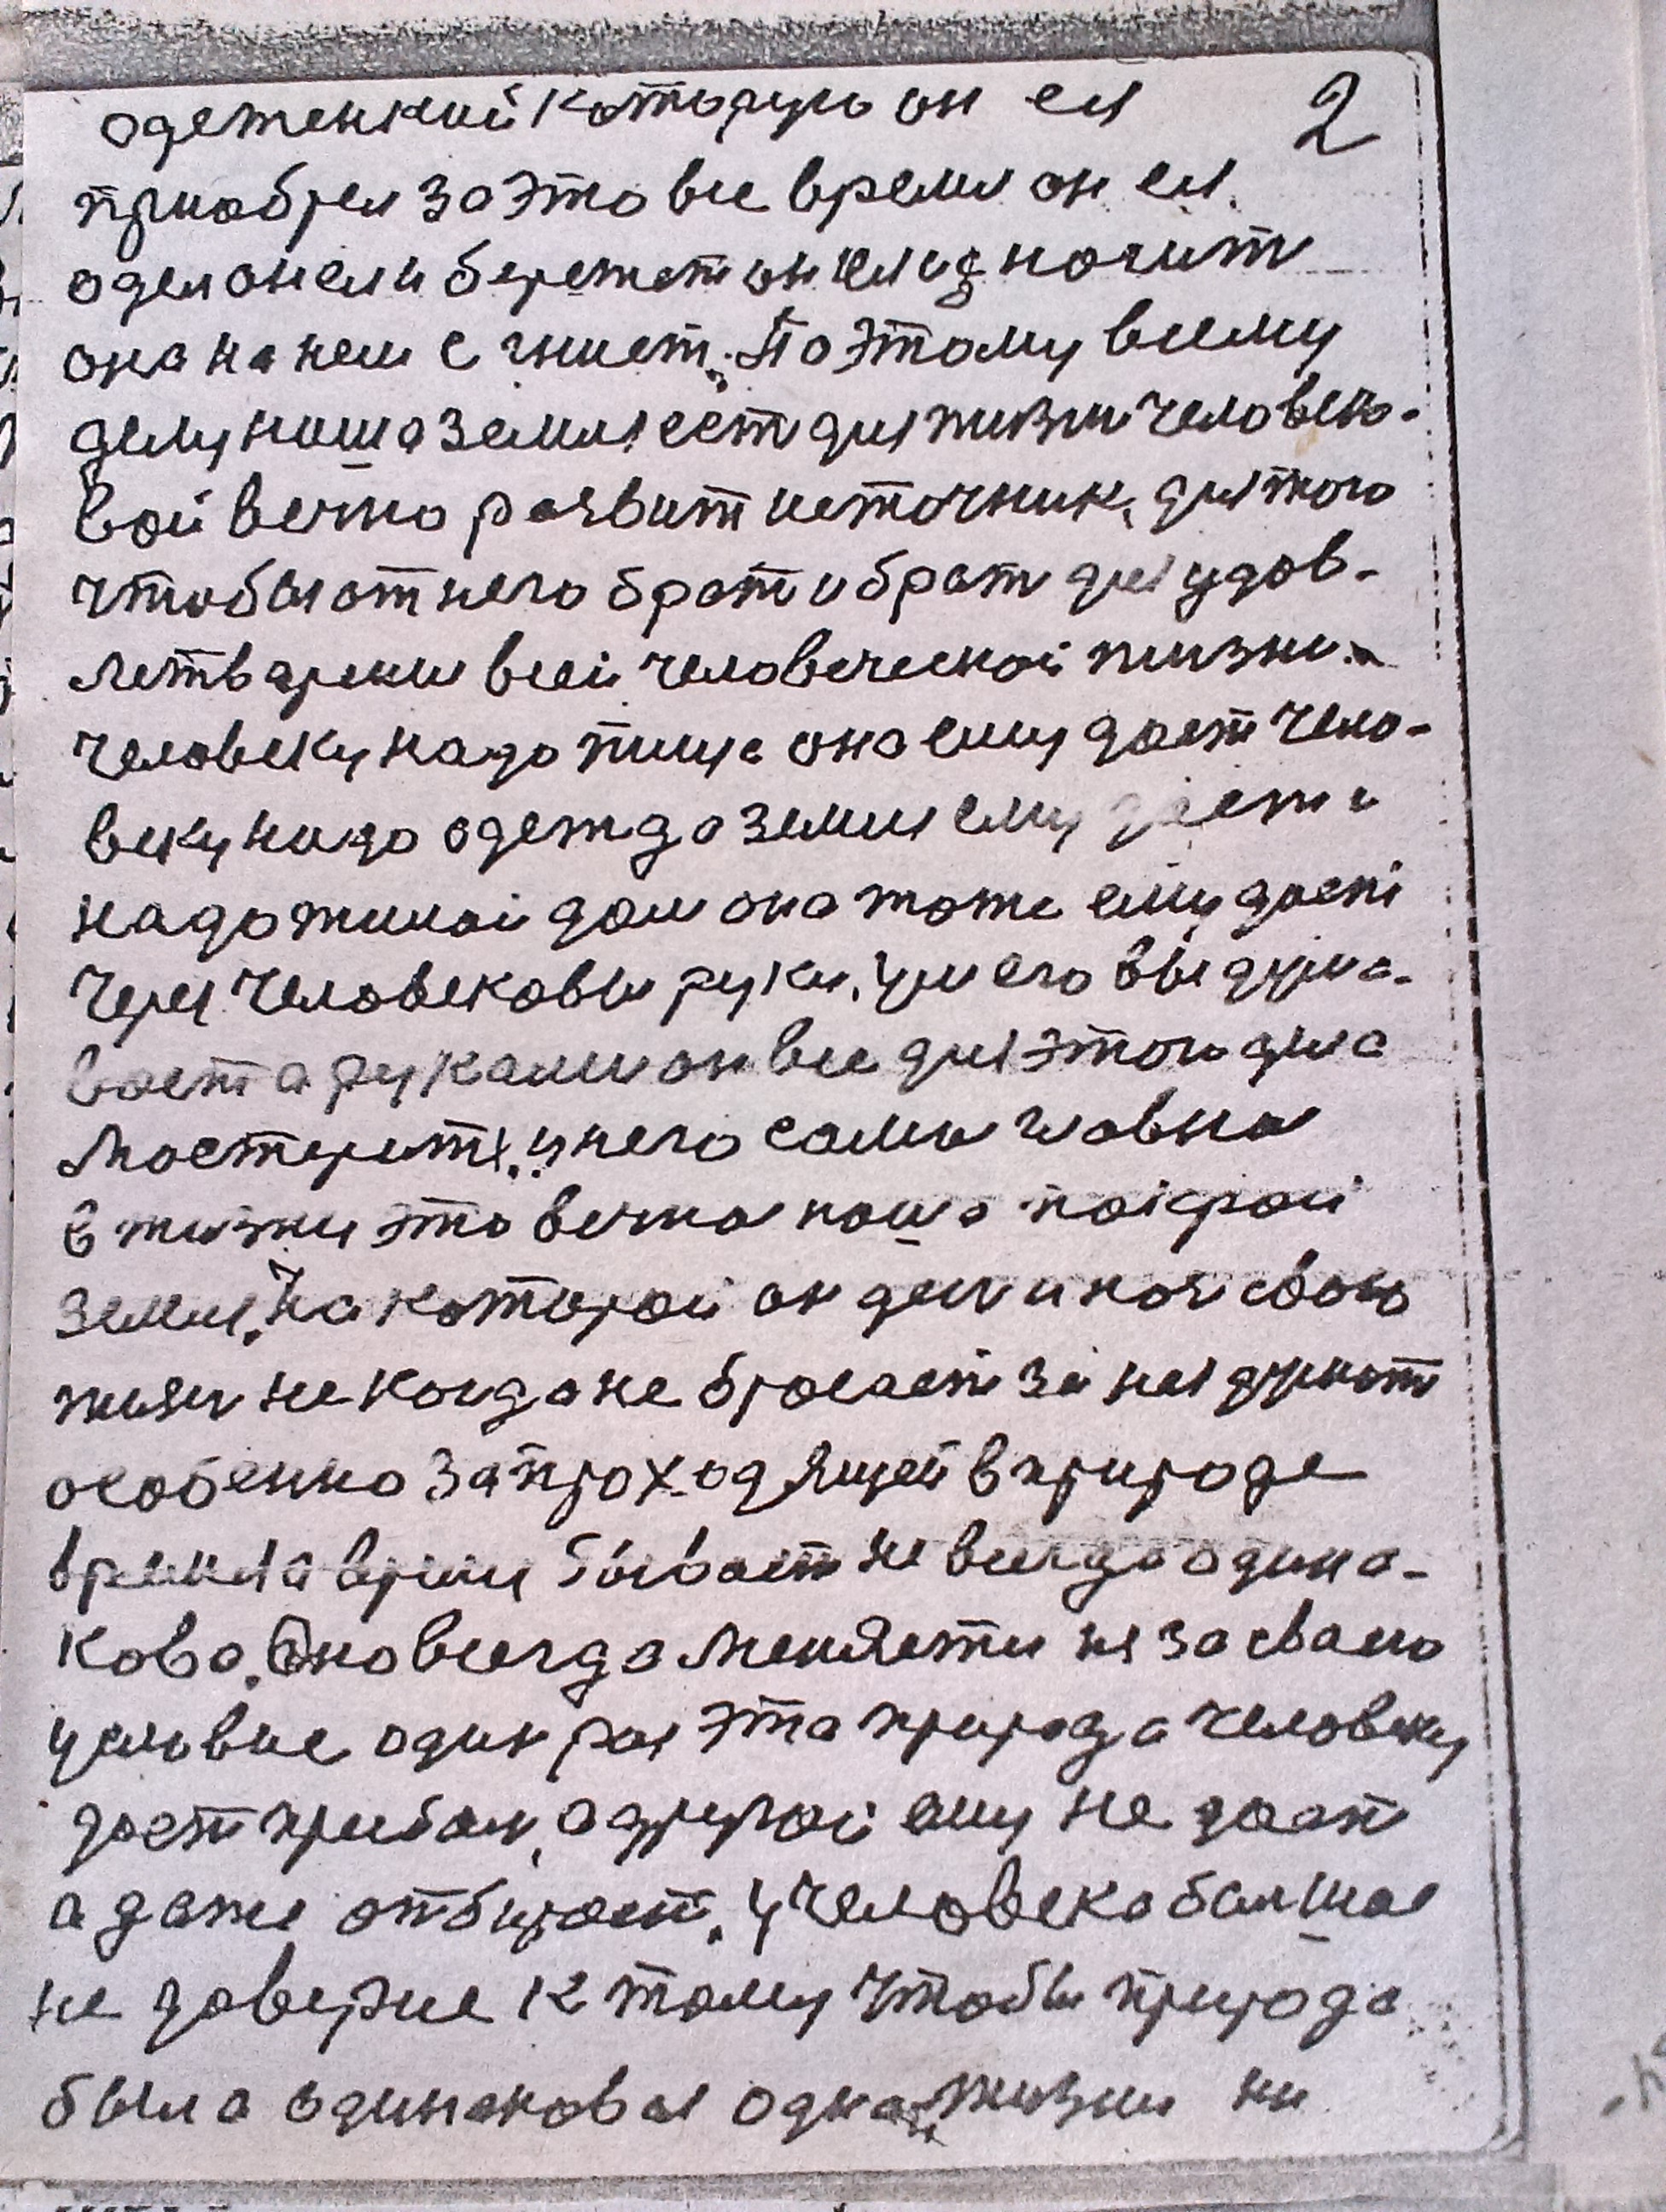 одеженкой которую он ея 2
приобрел за это все время он ея
одел он ея и бережет он ея и носит
она на нем с гниет. Поэтому всему
делу наша земля есть для жизни человеко-
вой вечно развит источник, для того
чтобы от него брать и брать для удов-
летварения всей человеческой жизни.
человеку надо пища она ему дает чело-
веку надо одежда земля ему дает и
надо жилой дом она тоже ему дает
через человековы руки, ум его выдума-
вает а руками он все для этого дела
мастерить, у него самое главное
в жизни это вечная наша
земля, На которой он день и ночь свою
жизнь не когда не бросает за нея думает
особенно за проходящей в природе
время а время бывает не всегда одина-
ково. Оно всегда меняется не за свою
условие один раз эта природа человеку
дает прибыл, а другой ему не дает
а даже отбирает. У человека большое
не доверие к тому чтобы природа
была одинаковая одна жизни ни